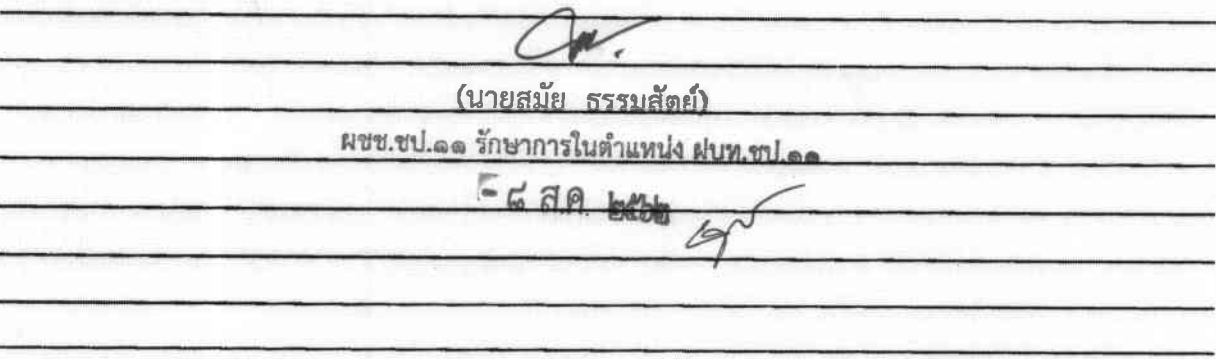 (นายสมัย ธรรมสัตย์)
ผชช.ชป.๑๑ รักษาการในตำแหน่ง ฝบท.ชป.๑๑
- ๘ ส.ค. ๒๕๖๒